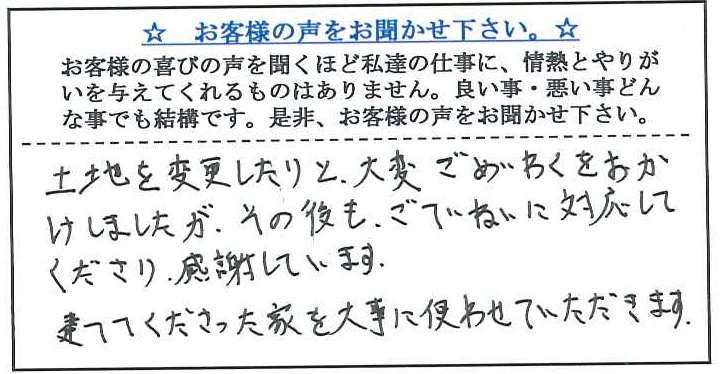 ☆ お客様の声をお聞かせ下さい。☆
お客様の喜びの声を聞くほど私達の仕事に、情熱とやりが
いを与えてくれるものはありません。良い事・悪い事どん
な事でも結構です。是非、お客様の声をお聞かせ下さい。
土地を変更したりと、大変ごめいわくをおか
けしましたが、その後も、ごていねいに対応して
くださり、感謝しています。
建ててくださった家を大事に使わせていただきます。